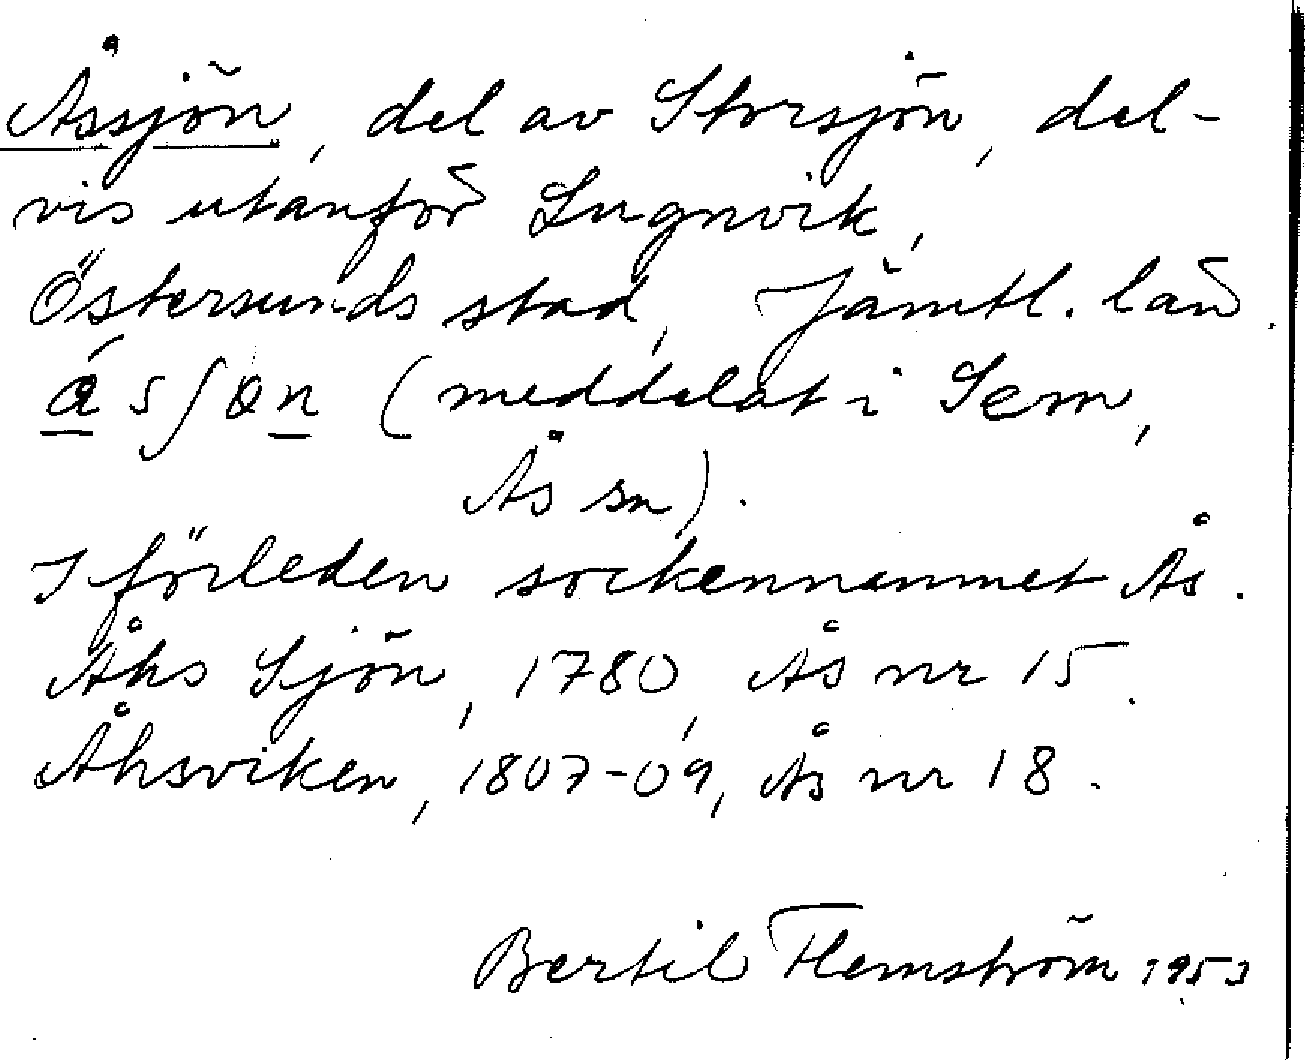 Åssjön, del av Storsjön, del-
vis utanför Lugnvik,
Östersunds stad, Jämtl. län.
(meddelat i Sem,
Ås sn).
I förleden sockennamnet Ås.
Åhs Sjön, 1780, Ås nr 15.
Åhsviken, 1807-09, Ås nr 18.
Bertil Flemström